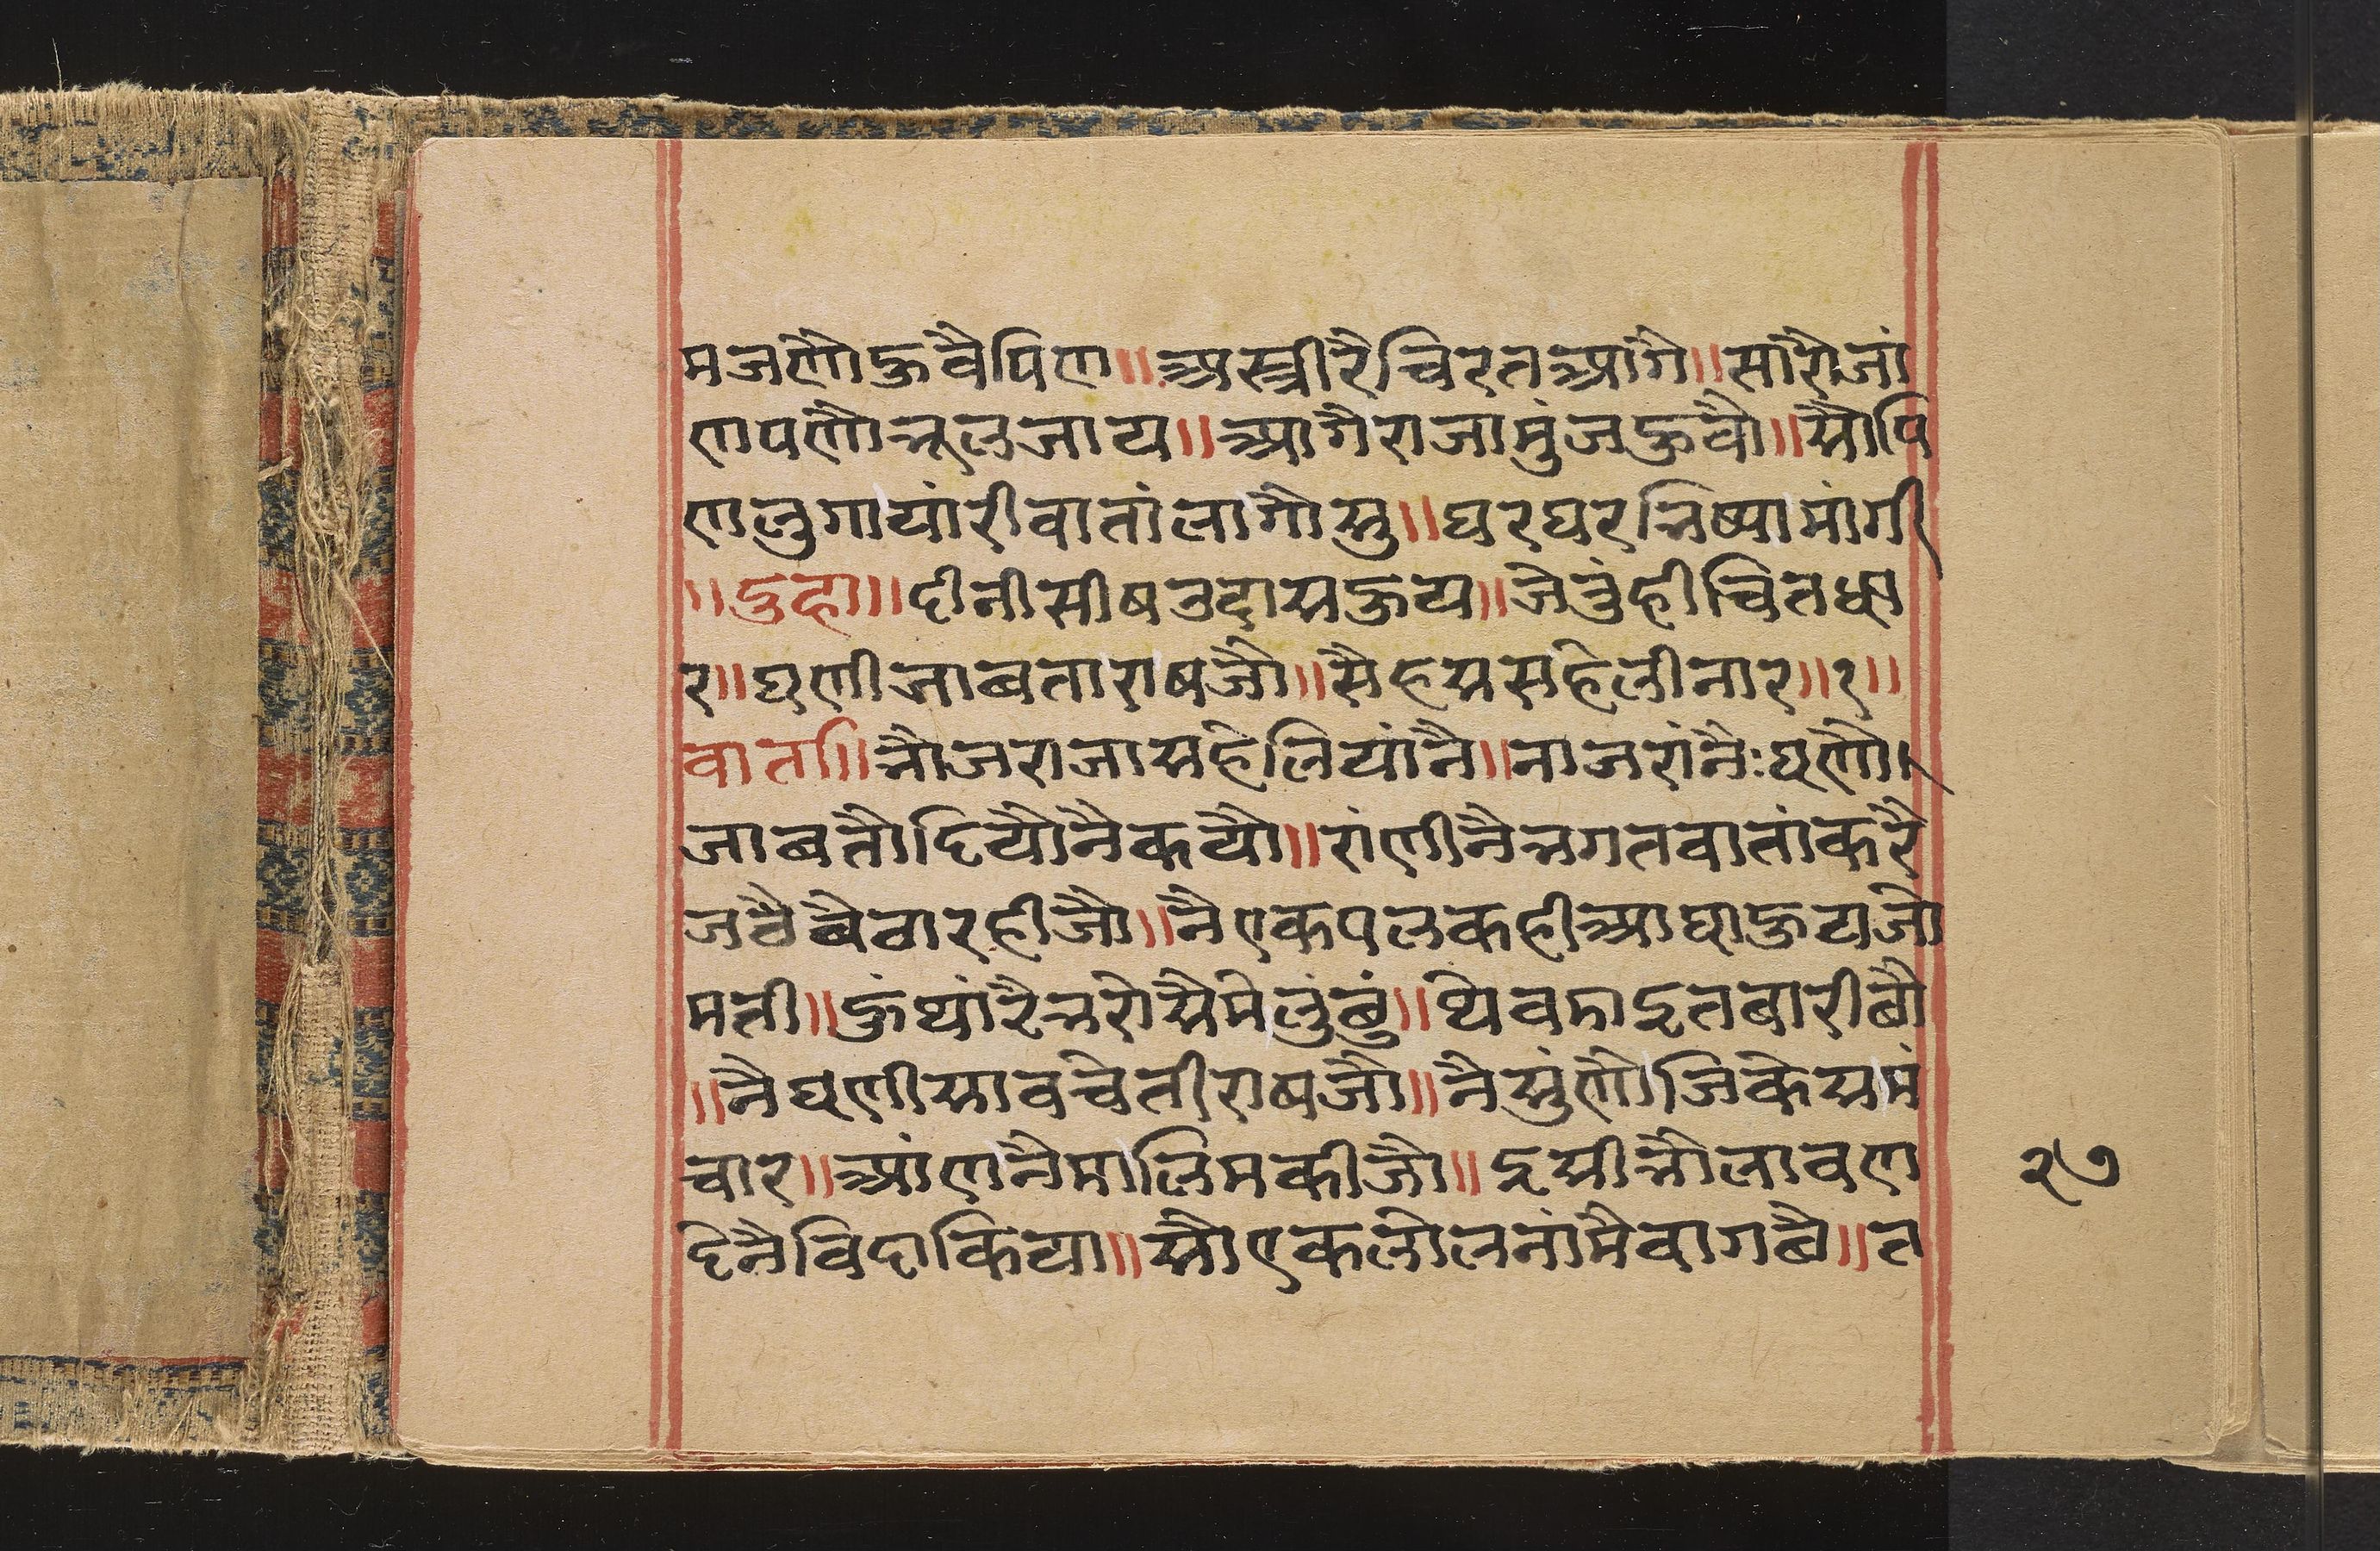 मजणौहुवैपिण॥अस्त्रीरैचिरतआगै॥सारौजां
णपणौभूलजाय॥आगैराजामुंजहुवौ॥सौपि
णलुगायांरीवातांलागौसु॥घरघरभिष्यामांगी
॥दुहा॥दीनीसीषउदासहुय॥जेतुंहीचितधा
र॥घणीजाबताराषजौ॥सैहससहेलीनार॥१॥
वात॥भोजराजासहेलियांनै॥नाजरांनैःघणौ
जाबतौदियौनैकयौ॥रांणीनैभगतवातांकरै
जठैबैठारहीजौ॥नैएकपलकहीआघाहुयजो
मती॥हुंथांरैभरोसैमेलुंछुं॥थेवमाइतबारीछौ
॥नैघणीसावचेतीराषजौ॥नैसुंणौजिकेसमं
चार॥आंणनैमालिमकीजौ॥इसीभोलावण
देनैविदाकिया॥सौएकलीलनांमैवागछै॥त
२७